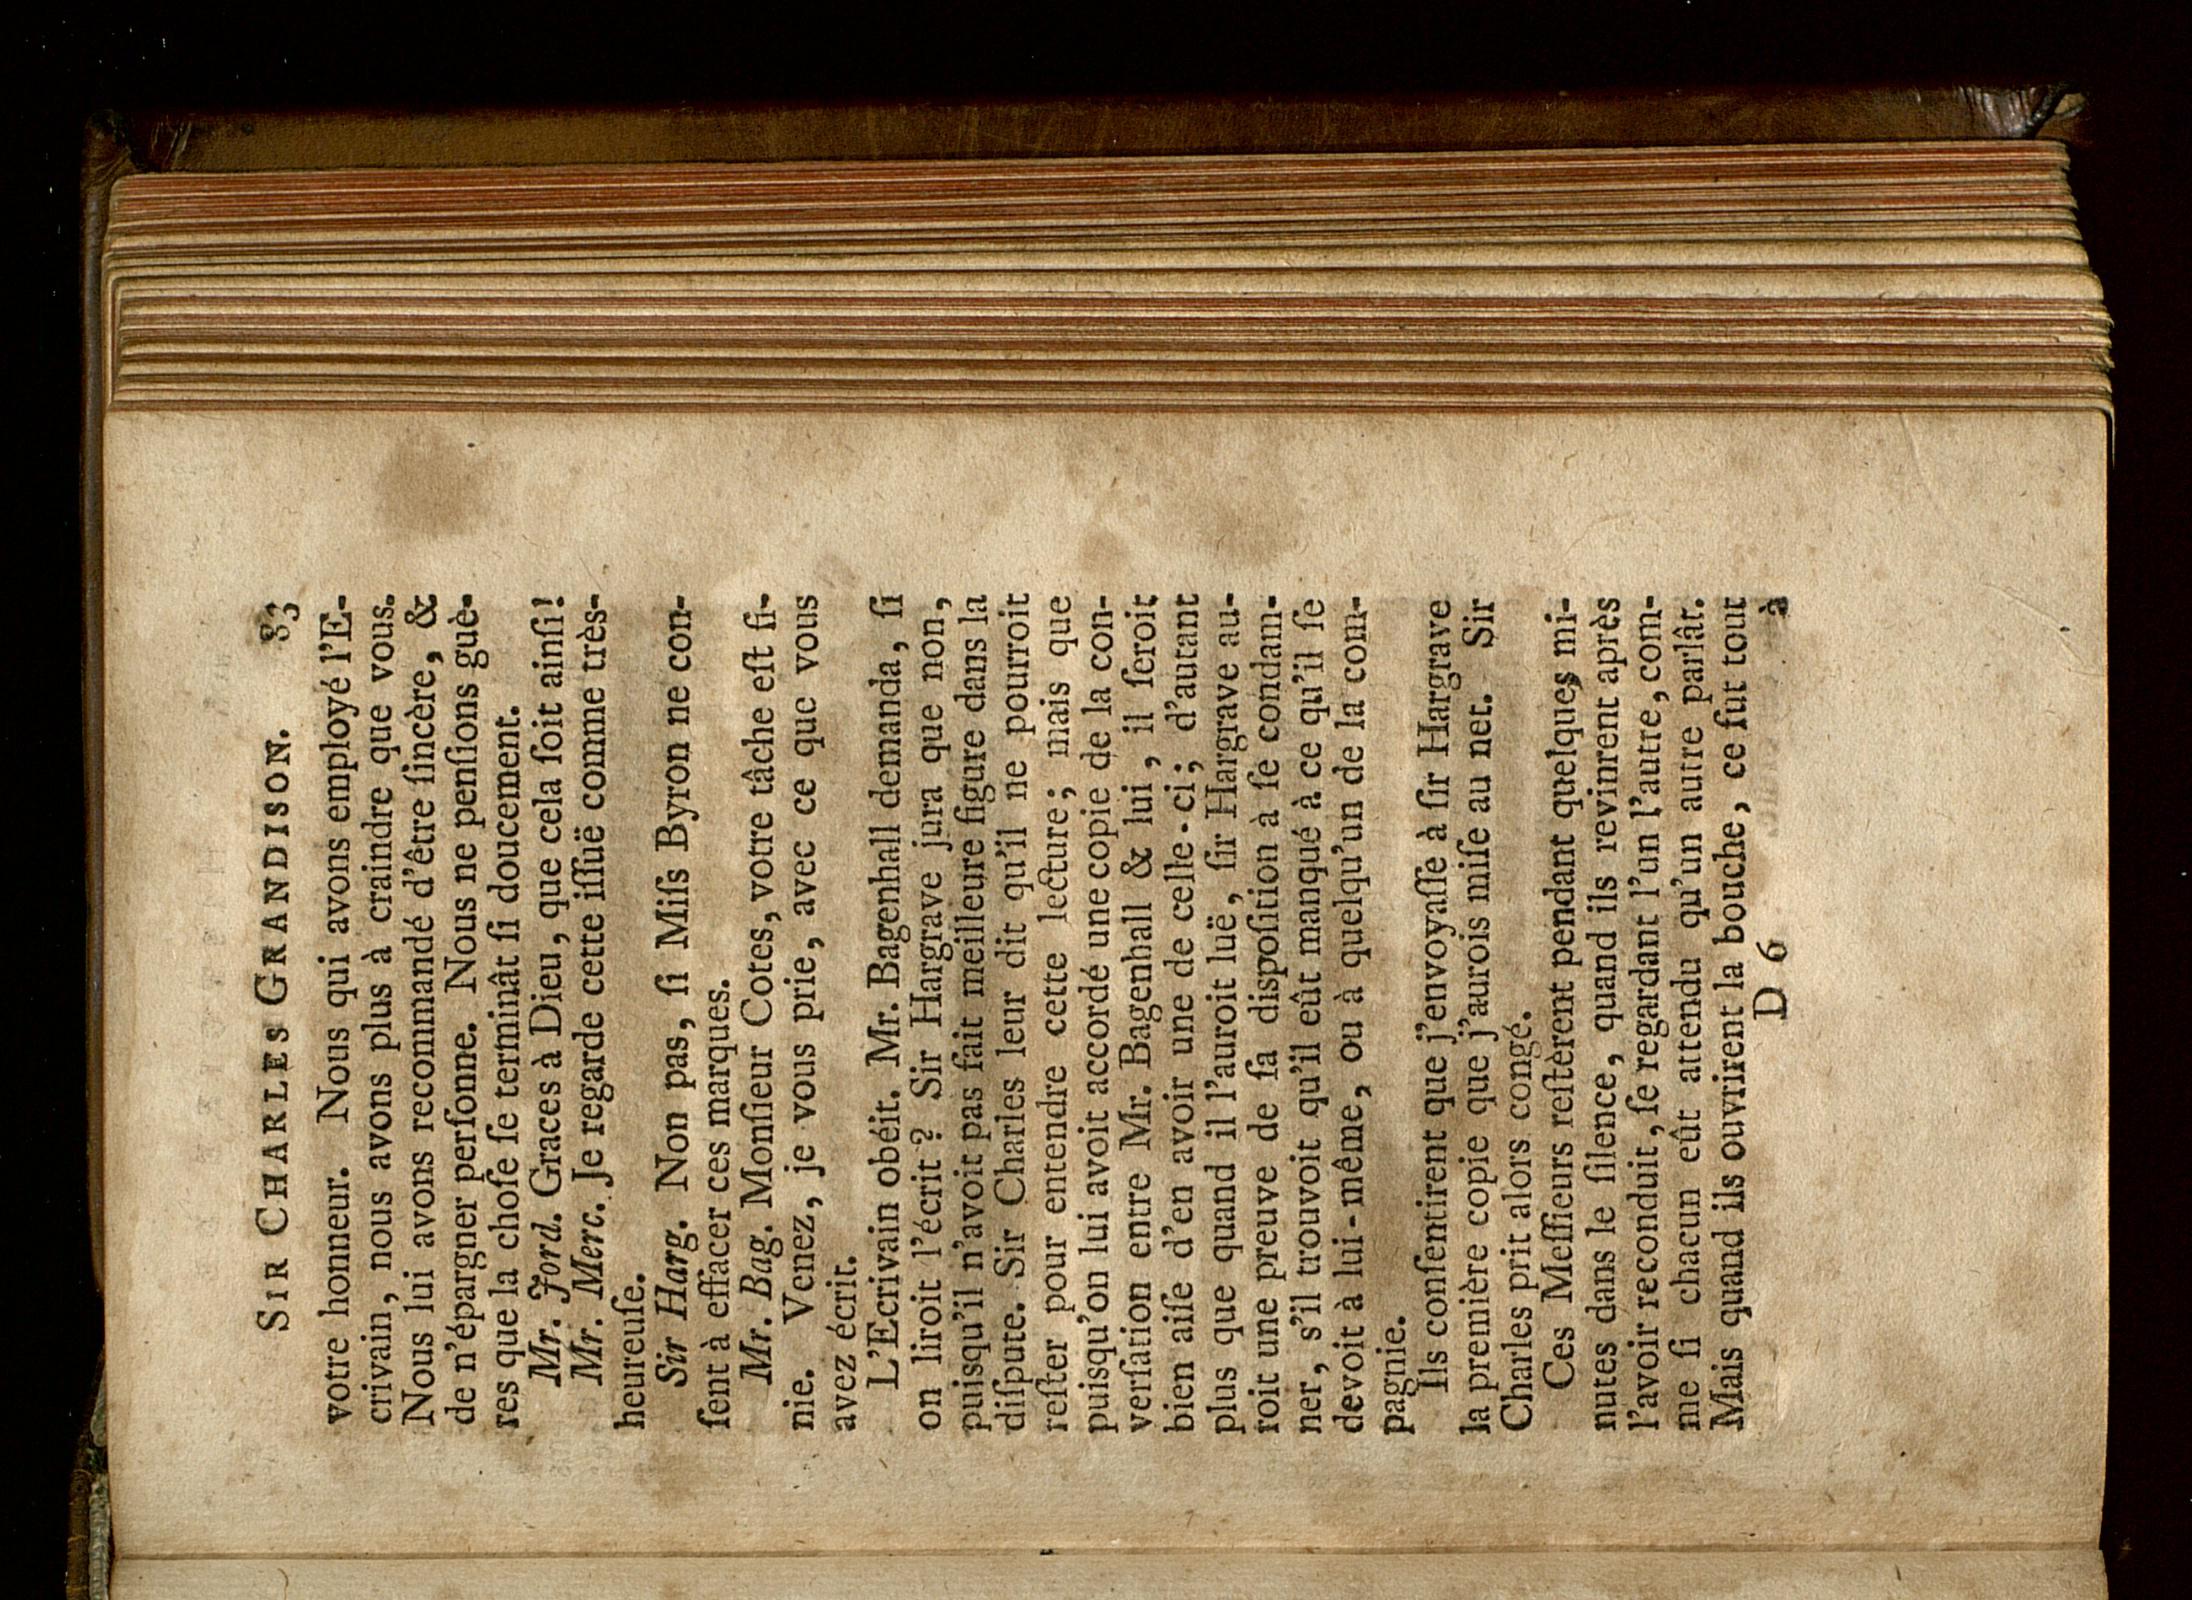 SIR CHARLES GRANDISON. 83
votre honneur. Nous qui avons employé l'E-
crivain, nous avons plus à craindre que vous.
Nous lui avons recommandé d'être ſincère, &
de n'épargner perſonne. Nous ne penſions guè-
res que la choſe ſe terminât ſi doucement.
Mr. Jord. Graces à Dieu, que cela ſoit ainſi!
Mr. Merc. Je regarde cette iſſuë comme très-
heureuſe.
Sir Harg. Non pas, ſi Miſs Byron ne con-
ſent à effacer ces marques.
Mr. Bag. Monſieur Cotes, votre tâche eſt fi-
nie. Venez, je vous prie, avec ce que vous
avez écrit.
L'Ecrivain obéit. Mr. Bagenhall demanda, ſi
on liroit l'écrit? Sir Hargrave jura que non,
puisqu'il n'avoit pas fait meilleure figure dans la
diſpute. Sir Charles leur dit qu'il ne pourroit
reſter pour entendre cette lecture; mais que
puisqu'on lui avoit accordé une copie de la con-
verſation entre Mr. Bagenhall & lui, il ſeroit
bien aiſe d'en avoir une de celle-ci; d'autant
plus que quand il l'auroit luë, ſir Hargrave au-
roit une preuve de ſa dispoſition à ſe condam-
ner, s'il trouvoit qu'il eût manqué à ce qu'il ſe
devoit à lui-même, ou à quelqu'un de la com-
pagnie.
Ils conſentirent que j'envoyaſſe à ſir Hargrave
la première copie que j'aurois miſe au net. Sir
Charles prit alors congé.
Ces Meſſieurs reſtèrent pendant quelques mi-
nutes dans le ſilence, quand ils revinrent après
l'avoir reconduit, ſe regardant l'un l'autre, com-
me ſi chacun eût attendu qu'un autre parlât.
Mais quand ils ouvrirent la bouche, ce fut tout
D 6 à